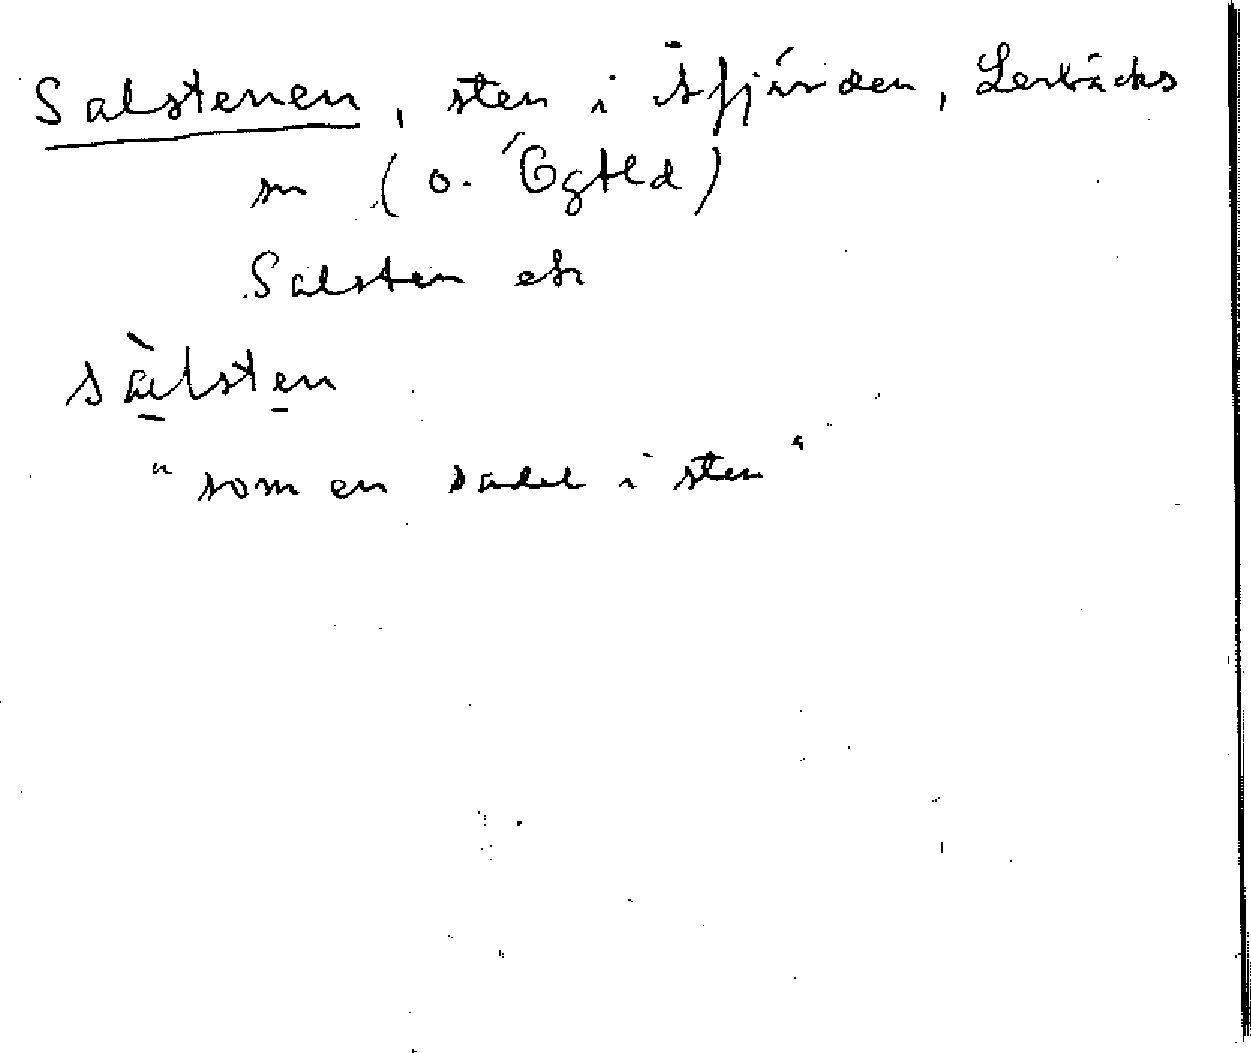 Salstenen, sten i Åfjärden, Lerbäcks
sn (o. Ögtld)
Salsten ek
sàlsten
"som en sadel i sten"